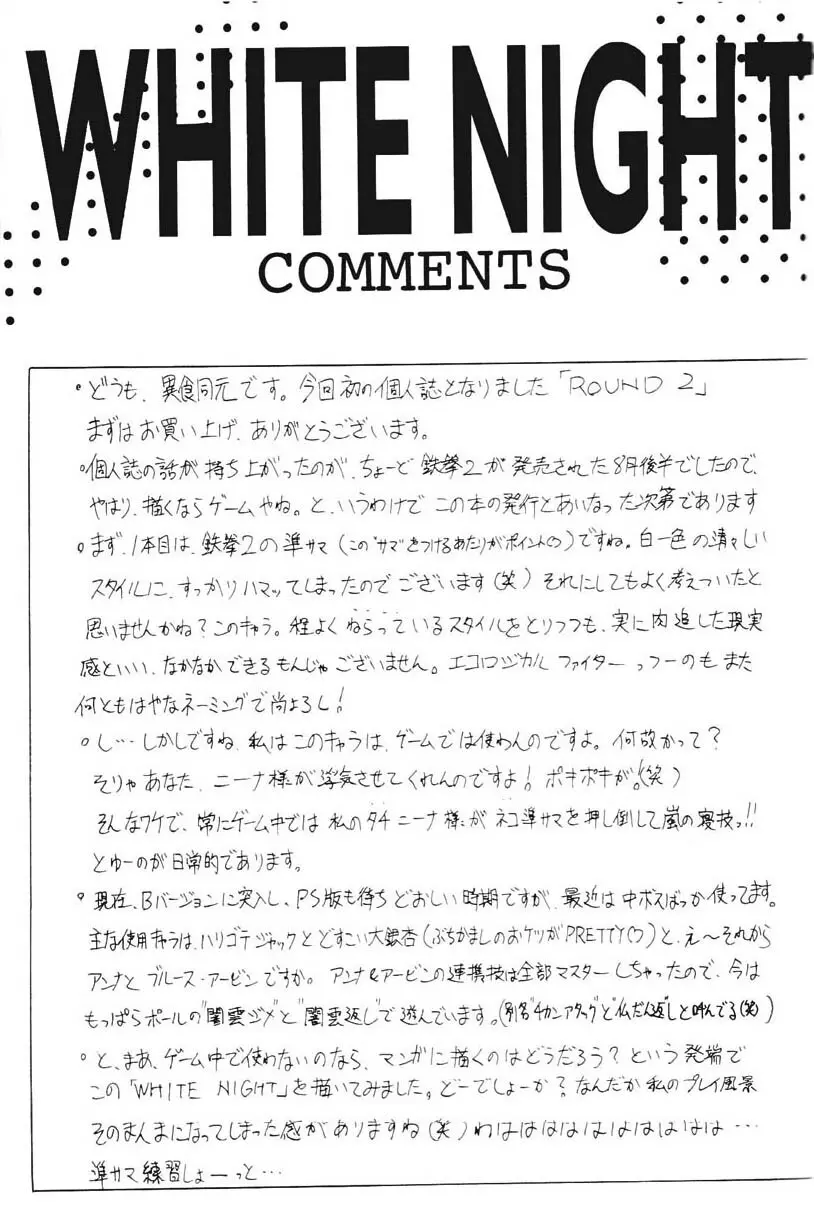 WHITE NIGHT
COMMENTS
・どうも、異食同元です。今回初の個人誌となりました「ROUND 2」
まずはお買い上げ、ありがとうございます。
・個人誌の話が持ち上がったのが、ちょーど鉄拳2が発売された8月後半でしたので、
やはり、描くならゲームやね。と、いうわけでこの本の発行とあいなった次第であります
・まず、1本目は、鉄拳2の準サマ(この"サマ"をつけるあたりがポイント♡)ですね。白一色の清々しい
スタイルに、すっかりハマッてしまったのでございます(笑)それにしてもよく考えついたと
思いませんかね?このキャラ。程よくねらっているスタイルをとりつつも、実に肉迫した現実
感といい、なかなかできるもんじゃございません。エコロジカルファイターっつーのもまた
何ともはやなネーミングで尚よろし!
・し…しかしですね、私はこのキャラは、ゲームでは使わんのですよ。何故かって?
そりゃあなた、ニーナ様が浮気させてくれんのですよ!ポキポキが。(笑)
そんなワケで、常にゲーム中では私のタチニーナ様がネコ準サマを押し倒して嵐の寝技っ!!
とゆーのが日常的であります。
・現在、Bバージョンに突入し、PS版も待ちどおしい時期ですが、最近は中ボスばっか使ってます。
主な使用キャラは、ハリゴテジャックとどすこい大銀杏(ぶちかましのおケツがPRETTY♡)と、え〜それから
アンナとブルース・アービンですか。アンナ&アービンの連携技は全部マスターしちゃったので、今は
もっぱらポールの"闇雲ジメ"と"闇雲返し"で遊んでいます。(別名"チカンアタック"と"仏だん返し"と呼んでる(笑))
・と、まあ、ゲーム中で使わないのなら、マンガに描くのはどうだろう?という発端で
この「WHITE NIGHT」を描いてみました。どーでしょーか?なんだか私のプレイ風景
そのまんまになってしまった感がありますね(笑)わはははははははははは…
準サマ練習しょーっと…